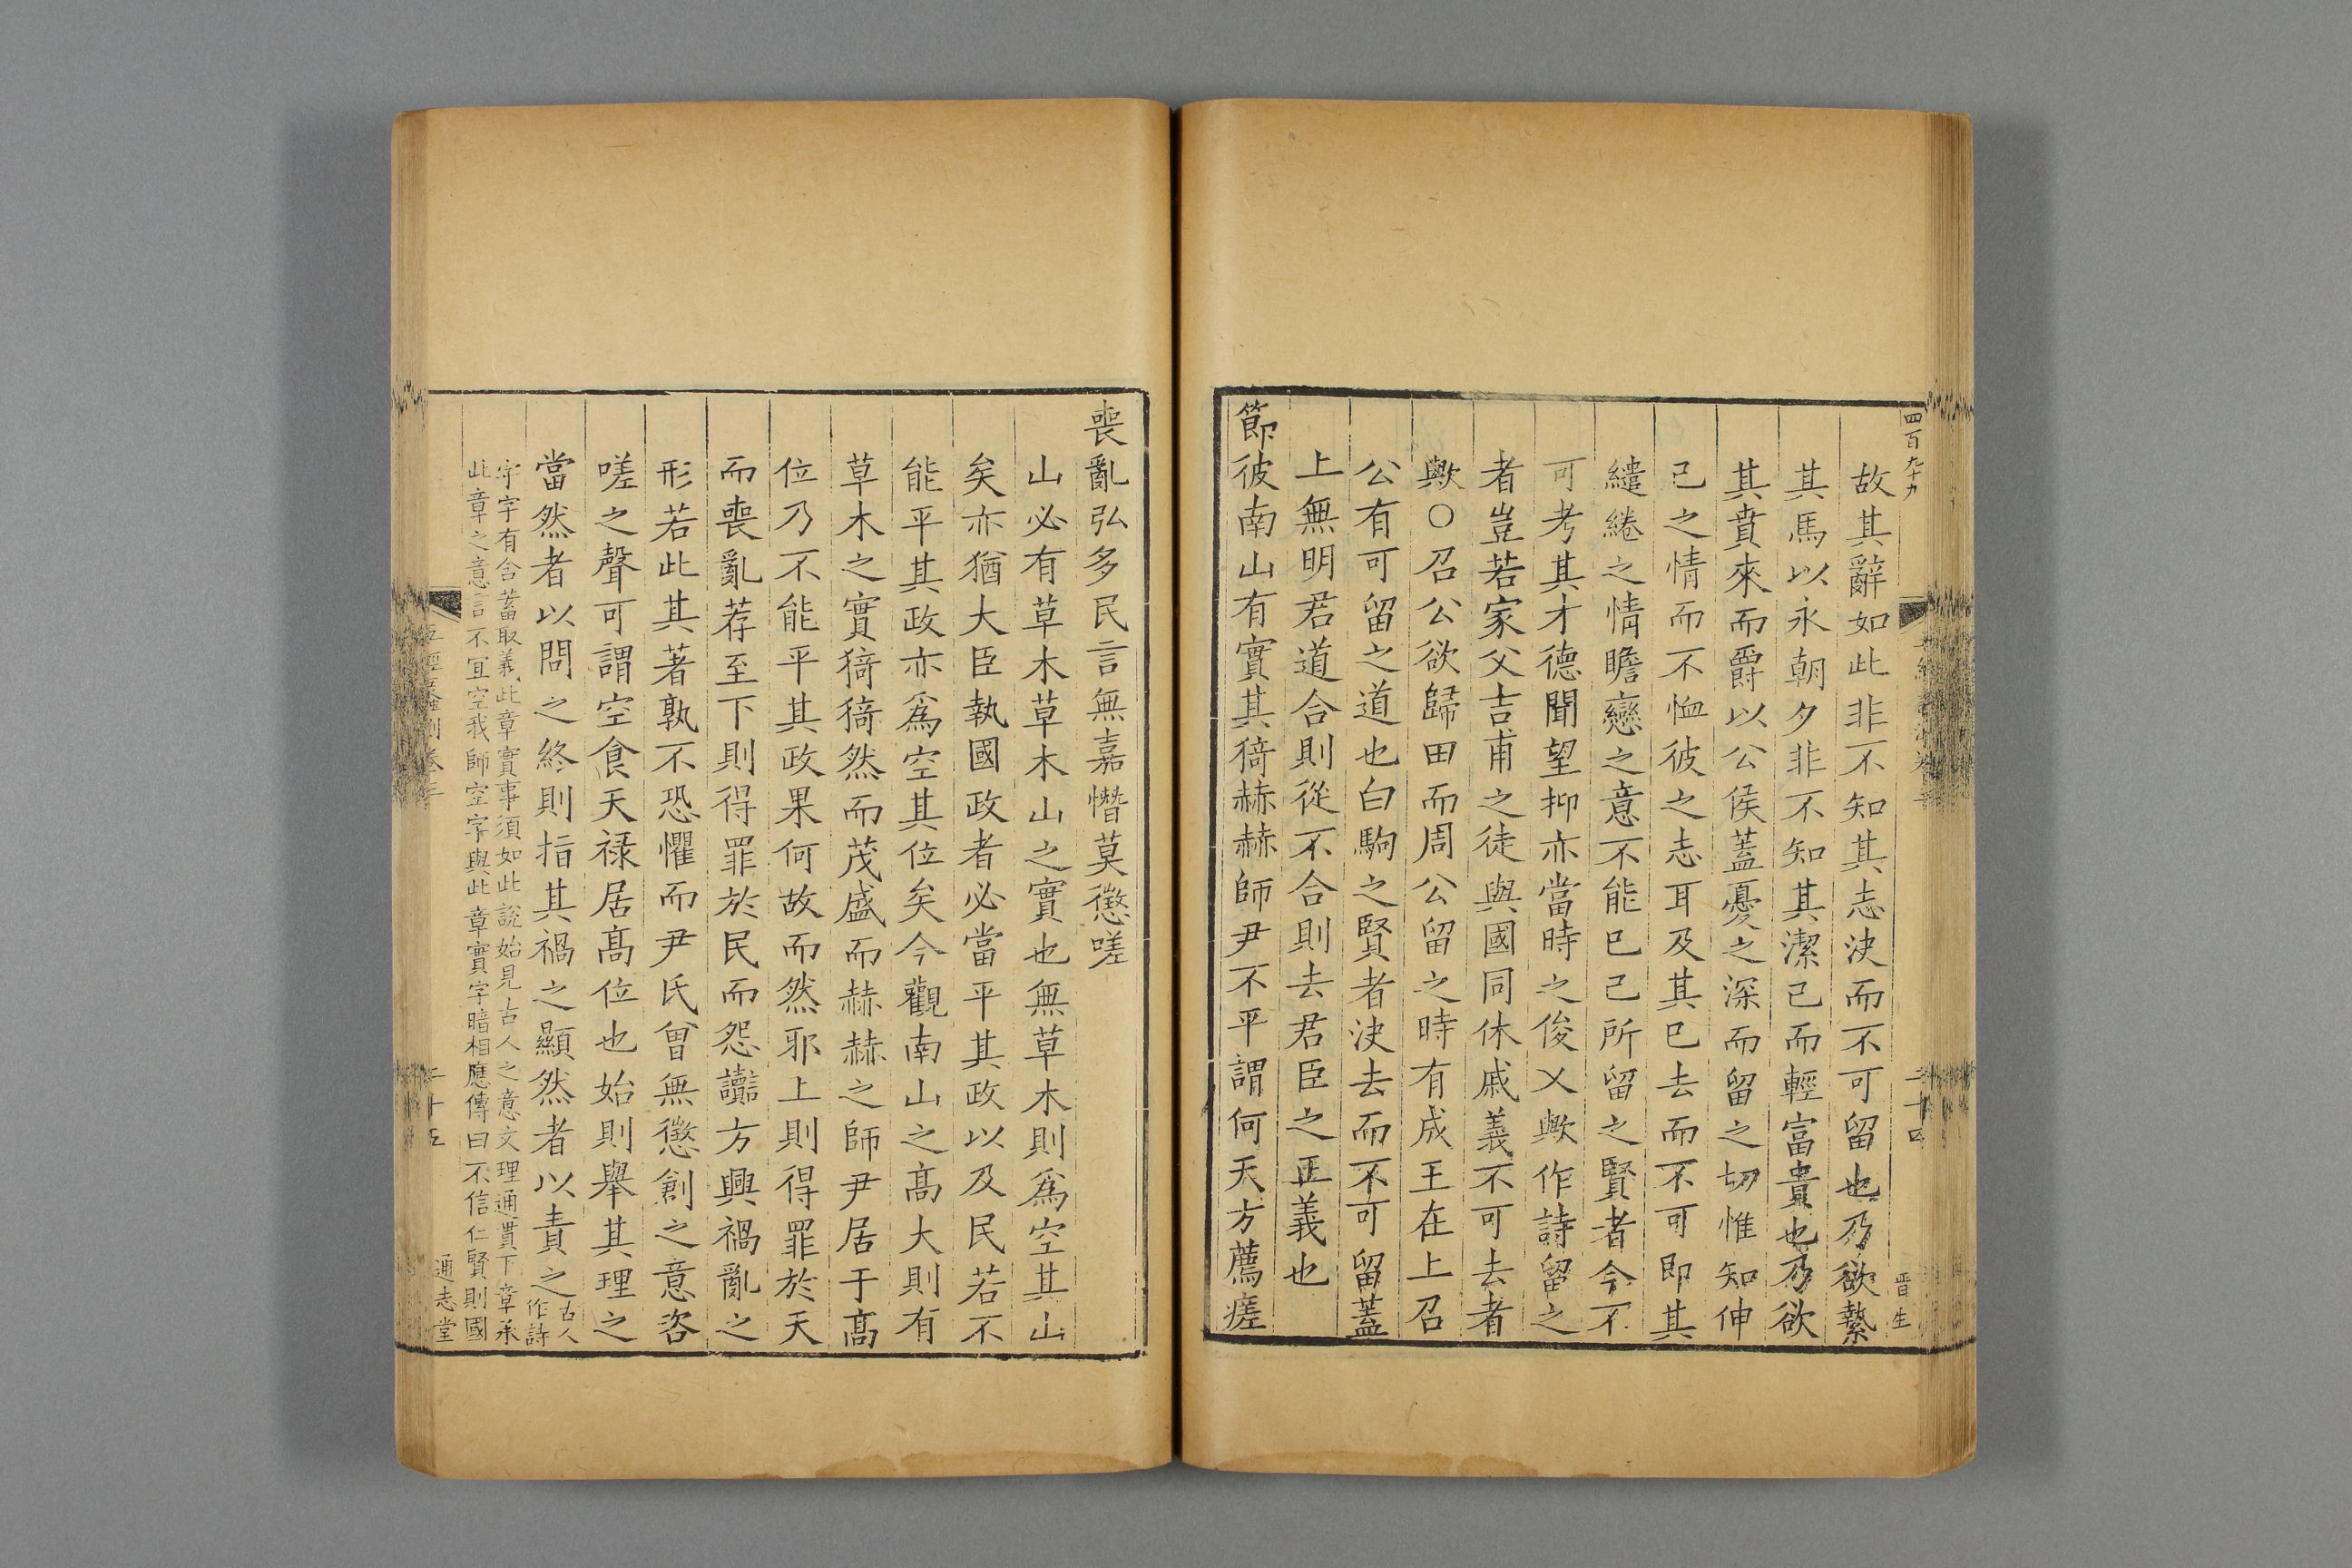 四百九十九
晋生
故其辭如此非不知其志決而不可留也乃欲縶
其馬以永朝夕非不知其潔己而輕富貴也乃欲
其賁來而爵以公侯蓋憂之深而留之切惟知伸
己之情而不恤彼之志耳及其已去而不可即其
繾綣之情瞻戀之意不能已已所留之賢者今不
可考其才德聞望抑亦當時之俊乂歟作詩留之
者豈若家父吉甫之徒與國同休戚義不可去者
歟○召公欲歸田而周公留之時有成王在上召
公有可留之道也白駒之賢者決去而不可留蓋
上無明君道合則從不合則去君臣之正義也
節彼南山有實其猗赫赫師尹不平謂何天方薦瘥
喪亂弘多民言無嘉憯莫懲嗟
山必有草木草木山之實也無草木則為空其山
矣亦猶大臣執國政者必當平其政以及民若不
能平其政亦為空其位矣今觀南山之髙大則有
草木之實猗猗然而茂盛而赫赫之師尹居于髙
位乃不能平其政果何故而然邪上則得罪於天
而喪亂荐至下則得罪於民而怨讟方興禍亂之
形若此其著孰不恐懼而尹氏曾無懲創之意咨
嗟之聲可謂空食天禄居髙位也始則舉其理之
當然者以問之終則指其禍之顯然者以責之古人
作詩
字字有含蓄取義此章實事須如此說始見古人之意文理通貫下章承
此章之意言不宜空我師空字與此章實字暗相應傳曰不信仁賢則國
二十五
通志堂